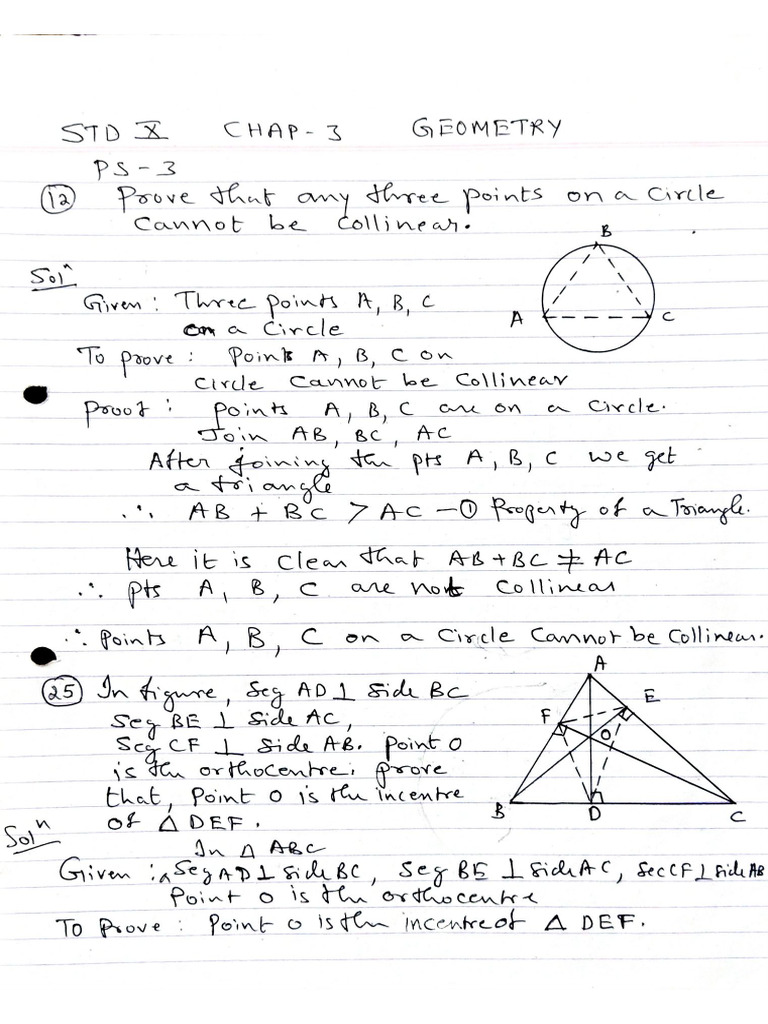 STD X CHAP-3 GEOMETRY
PS-3
(12) Prove that any three points on a circle
cannot be collinear.
B
Solⁿ
Given: Three points A, B, C
on a circle
A C
To prove: Points A, B, C on
circle cannot be collinear
Proof: Points A, B, C are on a circle.
Join AB, BC, AC
After joining the pts A, B, C we get
a triangle
∴ AB + BC > AC —① Property of a Triangle.
Here it is clear that AB+BC ≠ AC
∴ pts A, B, C are not collinear
∴ Points A, B, C on a circle cannot be collinear.
A
(25) In figure, Seg AD ⊥ side BC
E
Seg BE ⊥ side AC,
F
Seg CF ⊥ side AB. Point O
O
is the orthocentre. prove
that, Point O is the incentre
B D C
of △ DEF.
Solⁿ
In △ ABC
Given: ∧ Seg AD ⊥ side BC, Seg BE ⊥ side AC, Sec CF ⊥ side AB
Point O is the orthocentre
To Prove: Point O is the incentre of △ DEF.